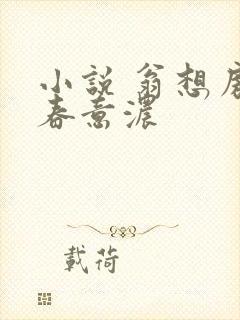 小說 翁想
春意濃
載荷